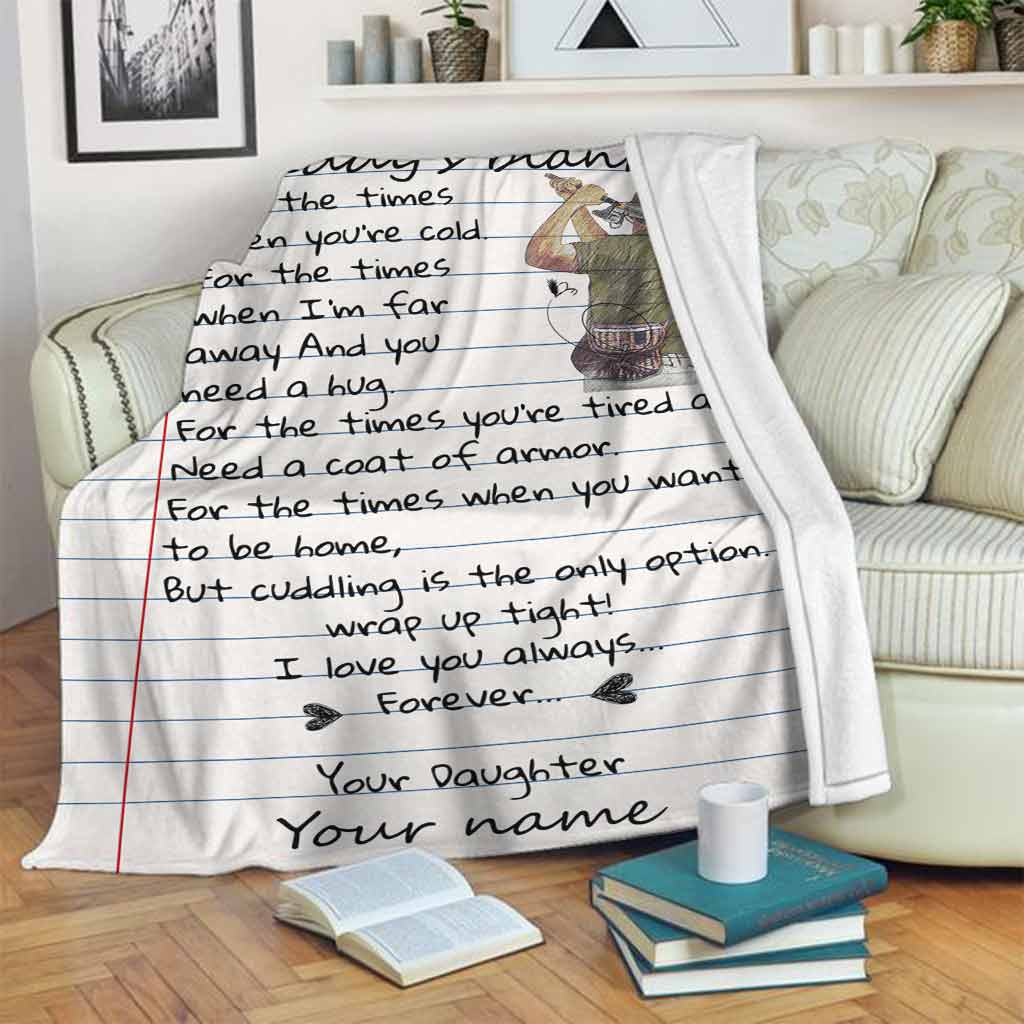 the times
you're cold.
For the times
when I'm far
away And you
need a hug.
For the times you're tired
Need a coat of armor.
For the times when you want
to be home,
But cuddling is the only option.
wrap up tight!
I love you always...
Forever...
Your Daughter
Your name